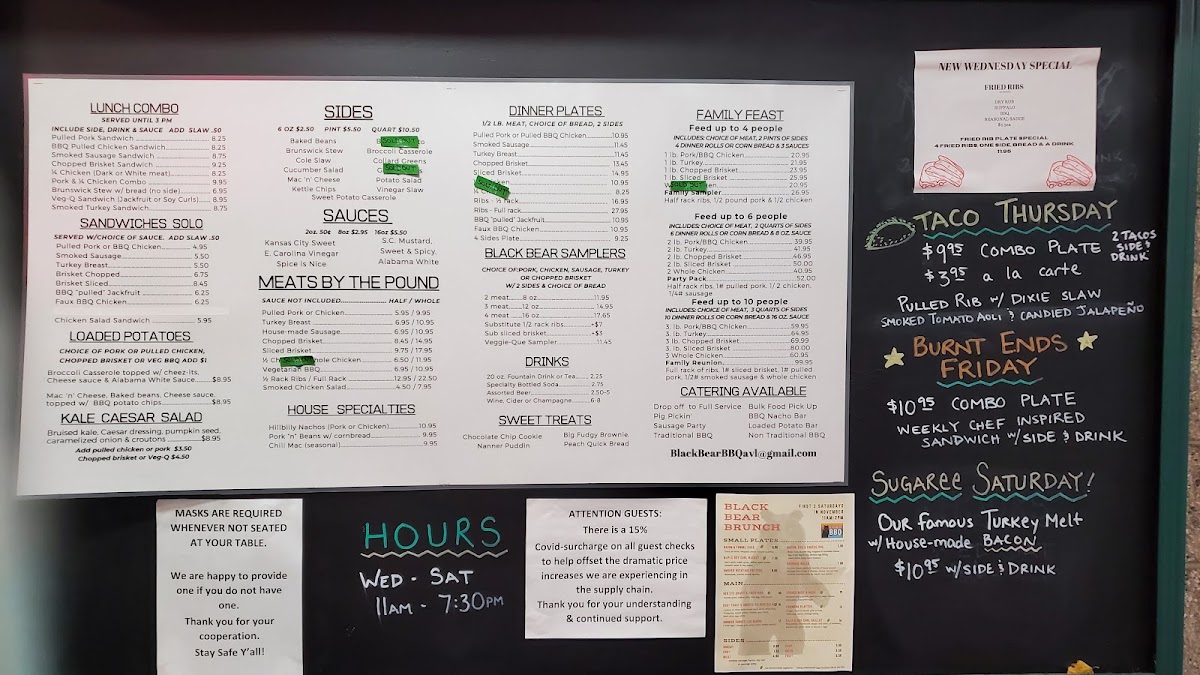 LUNCH COMBO
SERVED UNTIL 3 PM
INCLUDE SIDE, DRINK & SAUCE ADD SLAW .50
Pulled Pork Sandwich 8.25
BBQ Pulled Chicken Sandwich 8.25
Smoked Sausage Sandwich 8.75
Chopped Brisket Sandwich 9.25
¼ Chicken (Dark or White meat) 8.25
Pork & ¼ Chicken Combo 9.95
Brunswick Stew w/ bread (no side) 6.95
Veg-Q Sandwich (Jackfruit or Soy Curls) 8.95
Smoked Turkey Sandwich 8.75
SANDWICHES SOLO
SERVED W/CHOICE OF SAUCE. ADD SLAW .50
Pulled Pork or BBQ Chicken 4.95
Smoked Sausage 5.50
Turkey Breast 5.50
Brisket Chopped 6.75
Brisket Sliced 8.45
BBQ "pulled" Jackfruit 6.25
Faux BBQ Chicken 6.25
Chicken Salad Sandwich 5.95
LOADED POTATOES
CHOICE OF PORK OR PULLED CHICKEN,
CHOPPED BRISKET OR VEG BBQ ADD $1
Broccoli Casserole topped w/ cheez-its,
Cheese sauce & Alabama White Sauce $8.95
Mac 'n' Cheese, Baked beans, Cheese sauce,
topped w/ BBQ potato chips $8.95
KALE CAESAR SALAD
Bruised kale, Caesar dressing, pumpkin seed,
caramelized onion & croutons $8.95
Add pulled chicken or pork $3.50
Chopped brisket or Veg-Q $4.50
SIDES
6 OZ $2.50 PINT $5.50 QUART $10.50
Baked Beans
Brunswick Stew
Cole Slaw
Cucumber Salad
Mac 'n' Cheese
Kettle Chips
SOLD OUT
Broccoli Casserole
Collard Greens
SOLD OUT
Potato Salad
Vinegar Slaw
Sweet Potato Casserole
SAUCES
2oz. 50¢ 8oz $2.95 16oz $5.50
Kansas City Sweet
E. Carolina Vinegar
Spice is Nice
S.C. Mustard,
Sweet & Spicy,
Alabama White
MEATS BY THE POUND
SAUCE NOT INCLUDED HALF / WHOLE
Pulled Pork or Chicken 5.95 / 9.95
Turkey Breast 6.95 / 10.95
House-made Sausage 6.95 / 10.95
Chopped Brisket 8.45 / 14.95
Sliced Brisket 9.75 / 17.95
½ Chicken / Whole Chicken 6.50 / 11.95
Vegetarian BBQ 6.95 / 10.95
½ Rack Ribs / Full Rack 12.95 / 22.50
Smoked Chicken Salad 4.50 / 7.95
HOUSE SPECIALTIES
Hillbilly Nachos (Pork or Chicken) 10.95
Pork "n" Beans w/ cornbread 9.95
Chili Mac (seasonal) 9.95
DINNER PLATES
1/2 LB. MEAT, CHOICE OF BREAD, 2 SIDES
Pulled Pork or Pulled BBQ Chicken 10.95
Smoked Sausage 11.45
Turkey Breast 11.45
Chopped Brisket 13.45
Sliced Brisket 14.95
SOLD OUT 10.95
8.25
Ribs - ½ rack 16.95
Ribs - Full rack 27.95
BBQ "pulled" Jackfruit 10.95
Faux BBQ Chicken 10.95
4 Sides Plate 9.25
BLACK BEAR SAMPLERS
CHOICE OF:PORK, CHICKEN, SAUSAGE, TURKEY
OR CHOPPED BRISKET
W/ 2 SIDES & CHOICE OF BREAD
2 meat 8 oz 11.95
3 meat 12 oz 14.95
4 meat 16 oz 17.65
Substitute 1/2 rack ribs +$7
Sub sliced brisket +$7
Veggie-Que Sampler 11.45
DRINKS
20 oz. Fountain Drink or Tea 2.25
Specialty Bottled Soda 2.75
Assorted Beer 2.50-5
Wine, Cider or Champagne 6-8
SWEET TREATS
Chocolate Chip Cookie
Nanner Puddin
Big Fudgy Brownie,
Peach Quick Bread
FAMILY FEAST
Feed up to 4 people
INCLUDES: CHOICE OF MEAT, 2 PINTS OF SIDES
4 DINNER ROLLS OR CORN BREAD & 3 SAUCES
1 lb. Pork/BBQ Chicken 20.95
1 lb. Turkey 21.95
1 lb. Chopped Brisket 23.95
1 lb. Sliced Brisket 25.95
20.95
Family Sampler 26.95
Half rack ribs, 1/2 pound pork & 1/2 chicken
Feed up to 6 people
INCLUDES: CHOICE OF MEAT, 2 QUARTS OF SIDES
6 DINNER ROLLS OR CORN BREAD & 8 OZ. SAUCE
2 lb. Pork/BBQ Chicken 39.95
2 lb. Turkey 41.95
2 lb. Chopped Brisket 46.95
2 lb. Sliced Brisket 50.00
2 Whole Chicken 40.95
Party Pack 52.00
Half rack ribs, 1# pulled pork, 1/2 chicken,
1/4# sausage
Feed up to 10 people
INCLUDES: CHOICE OF MEAT, 3 QUARTS OF SIDES
10 DINNER ROLLS OR CORN BREAD & 16 OZ. SAUCE
3 lb. Pork/BBQ Chicken 59.95
3 lb. Turkey 64.95
3 lb. Chopped Brisket 69.99
3 lb. Sliced Brisket 80.00
3 Whole Chicken 60.95
Family Reunion 99.95
Full rack of ribs, 1# sliced brisket, 1# pulled
pork, 1/2# smoked sausage & whole chicken
CATERING AVAILABLE
Drop off to Full Service
Pig Pickin'
Sausage Party
Traditional BBQ
Bulk Food Pick Up
BBQ Nacho Bar
Loaded Potato Bar
Non Traditional BBQ
BlackBearBBQavl@gmail.com
NEW WEDNESDAY SPECIAL
FRIED RIBS
DRY RUB
BUFFALO
BBQ
SEASONAL SAUCE
FRIED RIB PLATE SPECIAL
4 FRIED RIBS, ONE SIDE, BREAD & A DRINK
11.95
TACO THURSDAY
$9.95 COMBO PLATE 2 TACOS SIDE & DRINK
$3.95 a la carte
PULLED RIB w/ DIXIE SLAW
SMOKED TOMATO AOLI & CANDIED JALAPEÑO
BURNT ENDS
FRIDAY
$10.95 COMBO PLATE
WEEKLY CHEF INSPIRED
SANDWICH w/ SIDE & DRINK
SUGAREE SATURDAY!
OUR Famous TURKEY MELT
w/ HOUSE-MADE BACON
$10.95 w/SIDE & DRINK
MASKS ARE REQUIRED
WHENEVER NOT SEATED
AT YOUR TABLE.
We are happy to provide
one if you do not have
one.
Thank you for your
cooperation.
Stay Safe Y'all!
HOURS
WED - SAT
11AM - 7:30PM
ATTENTION GUESTS:
There is a 15%
Covid-surcharge on all guest checks
to help offset the dramatic price
increases we are experiencing in
the supply chain.
Thank you for your understanding
& continued support.
BLACK
BEAR
BRUNCH
FIRST 2 SATURDAYS
IN NOVEMBER
11AM-2PM
BBQ
SMALL PLATES
MAIN
SIDES